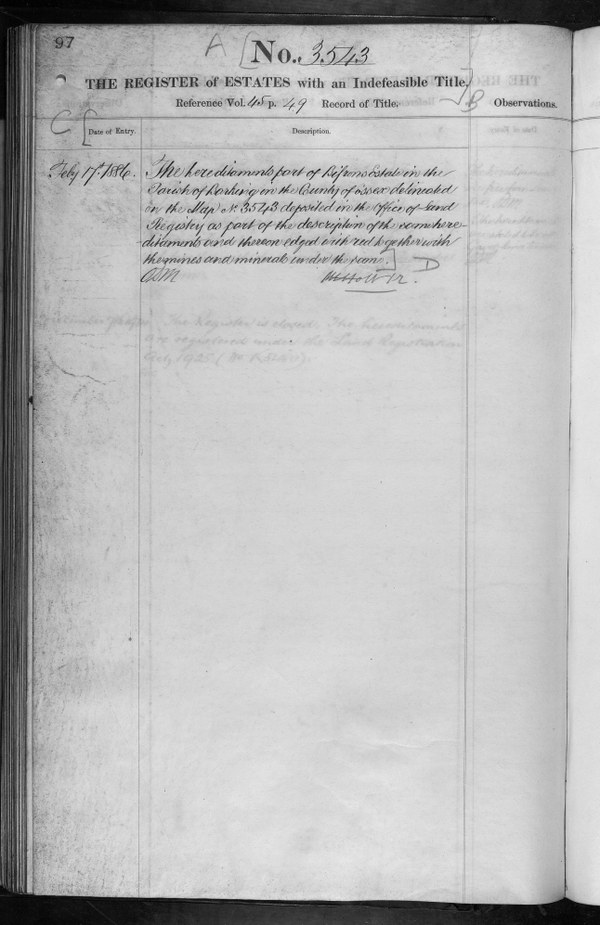 97
A [No. 3543
THE REGISTER of ESTATES with an Indefeasible Title.]
Reference Vol. 45 p. 49 Record of Title. B Observations.
C [Date of Entry. Description.
Feby 17th 1886. The hereditaments part of Bifrons Estate in the
Parish of Barking in the County of Essex delineated
on the Map No. 3543 deposited in the Office of Land
Registry as part of the description of the same here-
ditaments and thereon edged with red together with
the mines and minerals under the same.] D
The Register is closed. The hereditaments
are registered under the Land Registration
Act, 1925